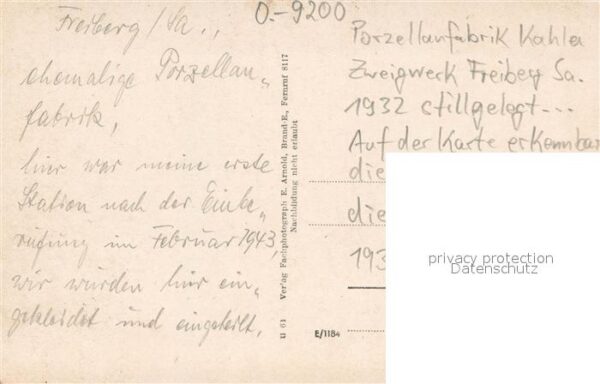 O.-9200
Freiberg/Sa.,
ehemalige Porzellan„
fabrik,
hier war meine erste
Station nach der Einbe„
rufung im Februar 1943,
wir wurden hier ein„
gekleidet und eingeteilt.
U 61 Verlag Fachphotograph E. Arnold, Brand-E., Fernruf 8117
Nachbildung nicht erlaubt
Porzellanfabrik Kahla
Zweigwerk Freiberg Sa.
1932 stillgelegt...
Auf der Karte erkennbar
die
die
193
E/1184
privacy protection
Datenschutz